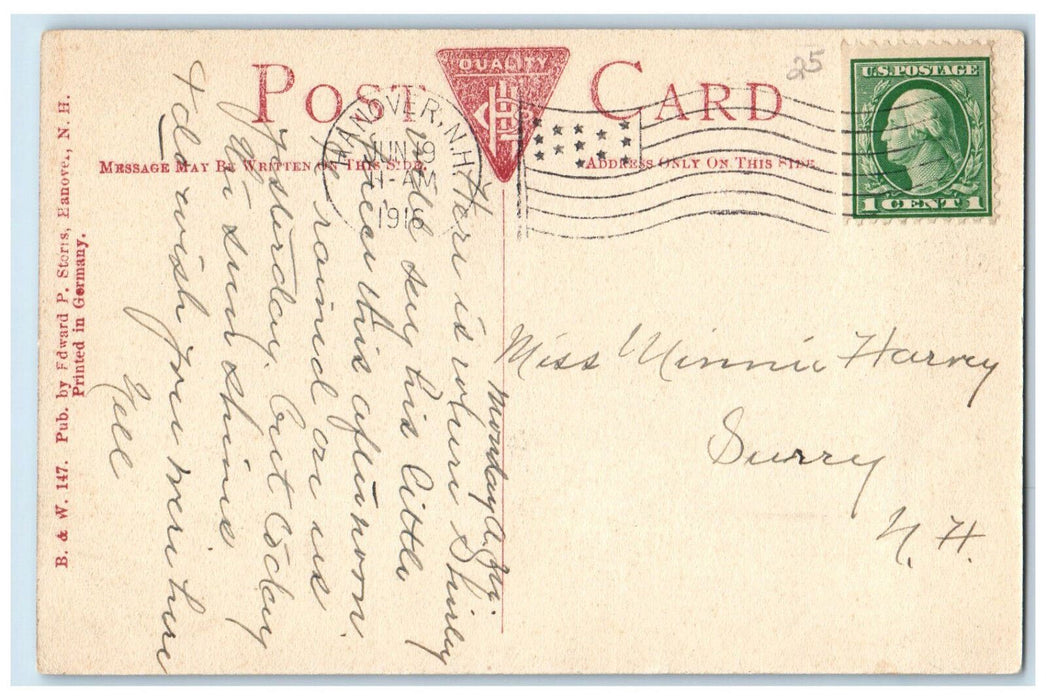 POST CARD
QUALITY
25
U.S. POSTAGE
1 CENT 1
HANOVER, N.H.
JUN 19
11-AM
1916
MESSAGE MAY BE WRITTEN ON THIS SIDE.
ADDRESS ONLY ON THIS SIDE
B. & W. 147. Pub. by Edward P. Storrs, Hanover, N. H.
Printed in Germany.
Monday A.M.
Here is where Shirley
will say his little
piece this afternoon.
It rained on us
yesterday, but today
the sun shines
& do wish you were here
Nell
Miss Minnie Harvey
Surry
N. H.